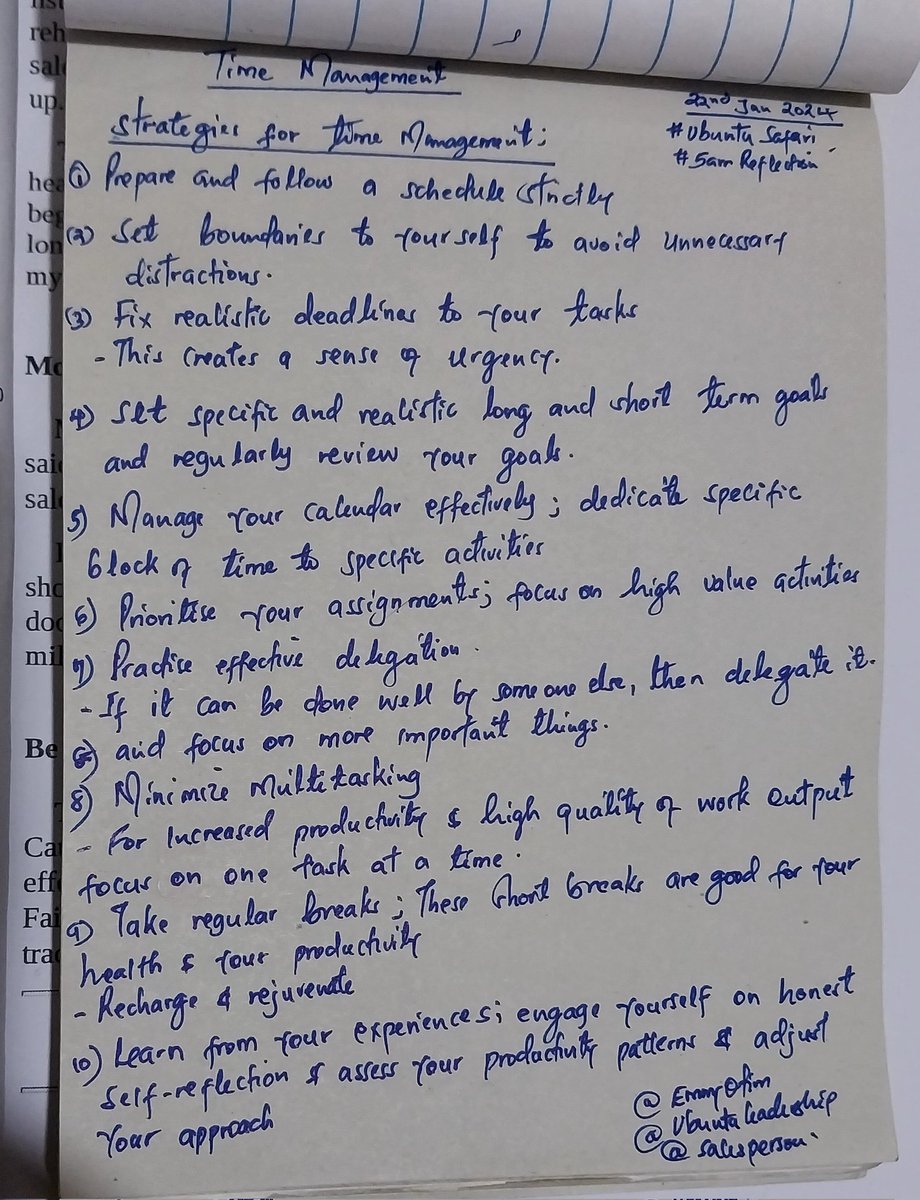 Time Management
22nd Jan 2024
#Ubuntu Safari
#5am Reflection
Strategies for time Management;
(1) Prepare and follow a schedule strictly
(2) Set boundaries to yourself to avoid unnecessary
distractions.
(3) Fix realistic deadlines to your tasks
- This creates a sense of urgency.
4) Set specific and realistic long and short term goals
and regularly review your goals.
5) Manage your calendar effectively; dedicate specific
block of time to specific activities
6) Prioritise your assignments; focus on high value activities
7) Practice effective delegation.
- If it can be done well by someone else, then delegate it.
and focus on more important things.
8) Minimize Multitasking
- For increased productivity & high quality of work output
focus on one task at a time.
9) Take regular breaks; These short breaks are good for your
health & your productivity
- Recharge & rejuvenate
10) Learn from your experiences; engage yourself on honest
self-reflection & assess your productivity patterns & adjust
your approach
@ Emmy Otim
@ Ubuntu leadership
@ salesperson.
reh
sal
up.
hea
beg
lon
my
Mo
said
sal
sho
doc
mil
Be
Ca
eff
Fai
tra